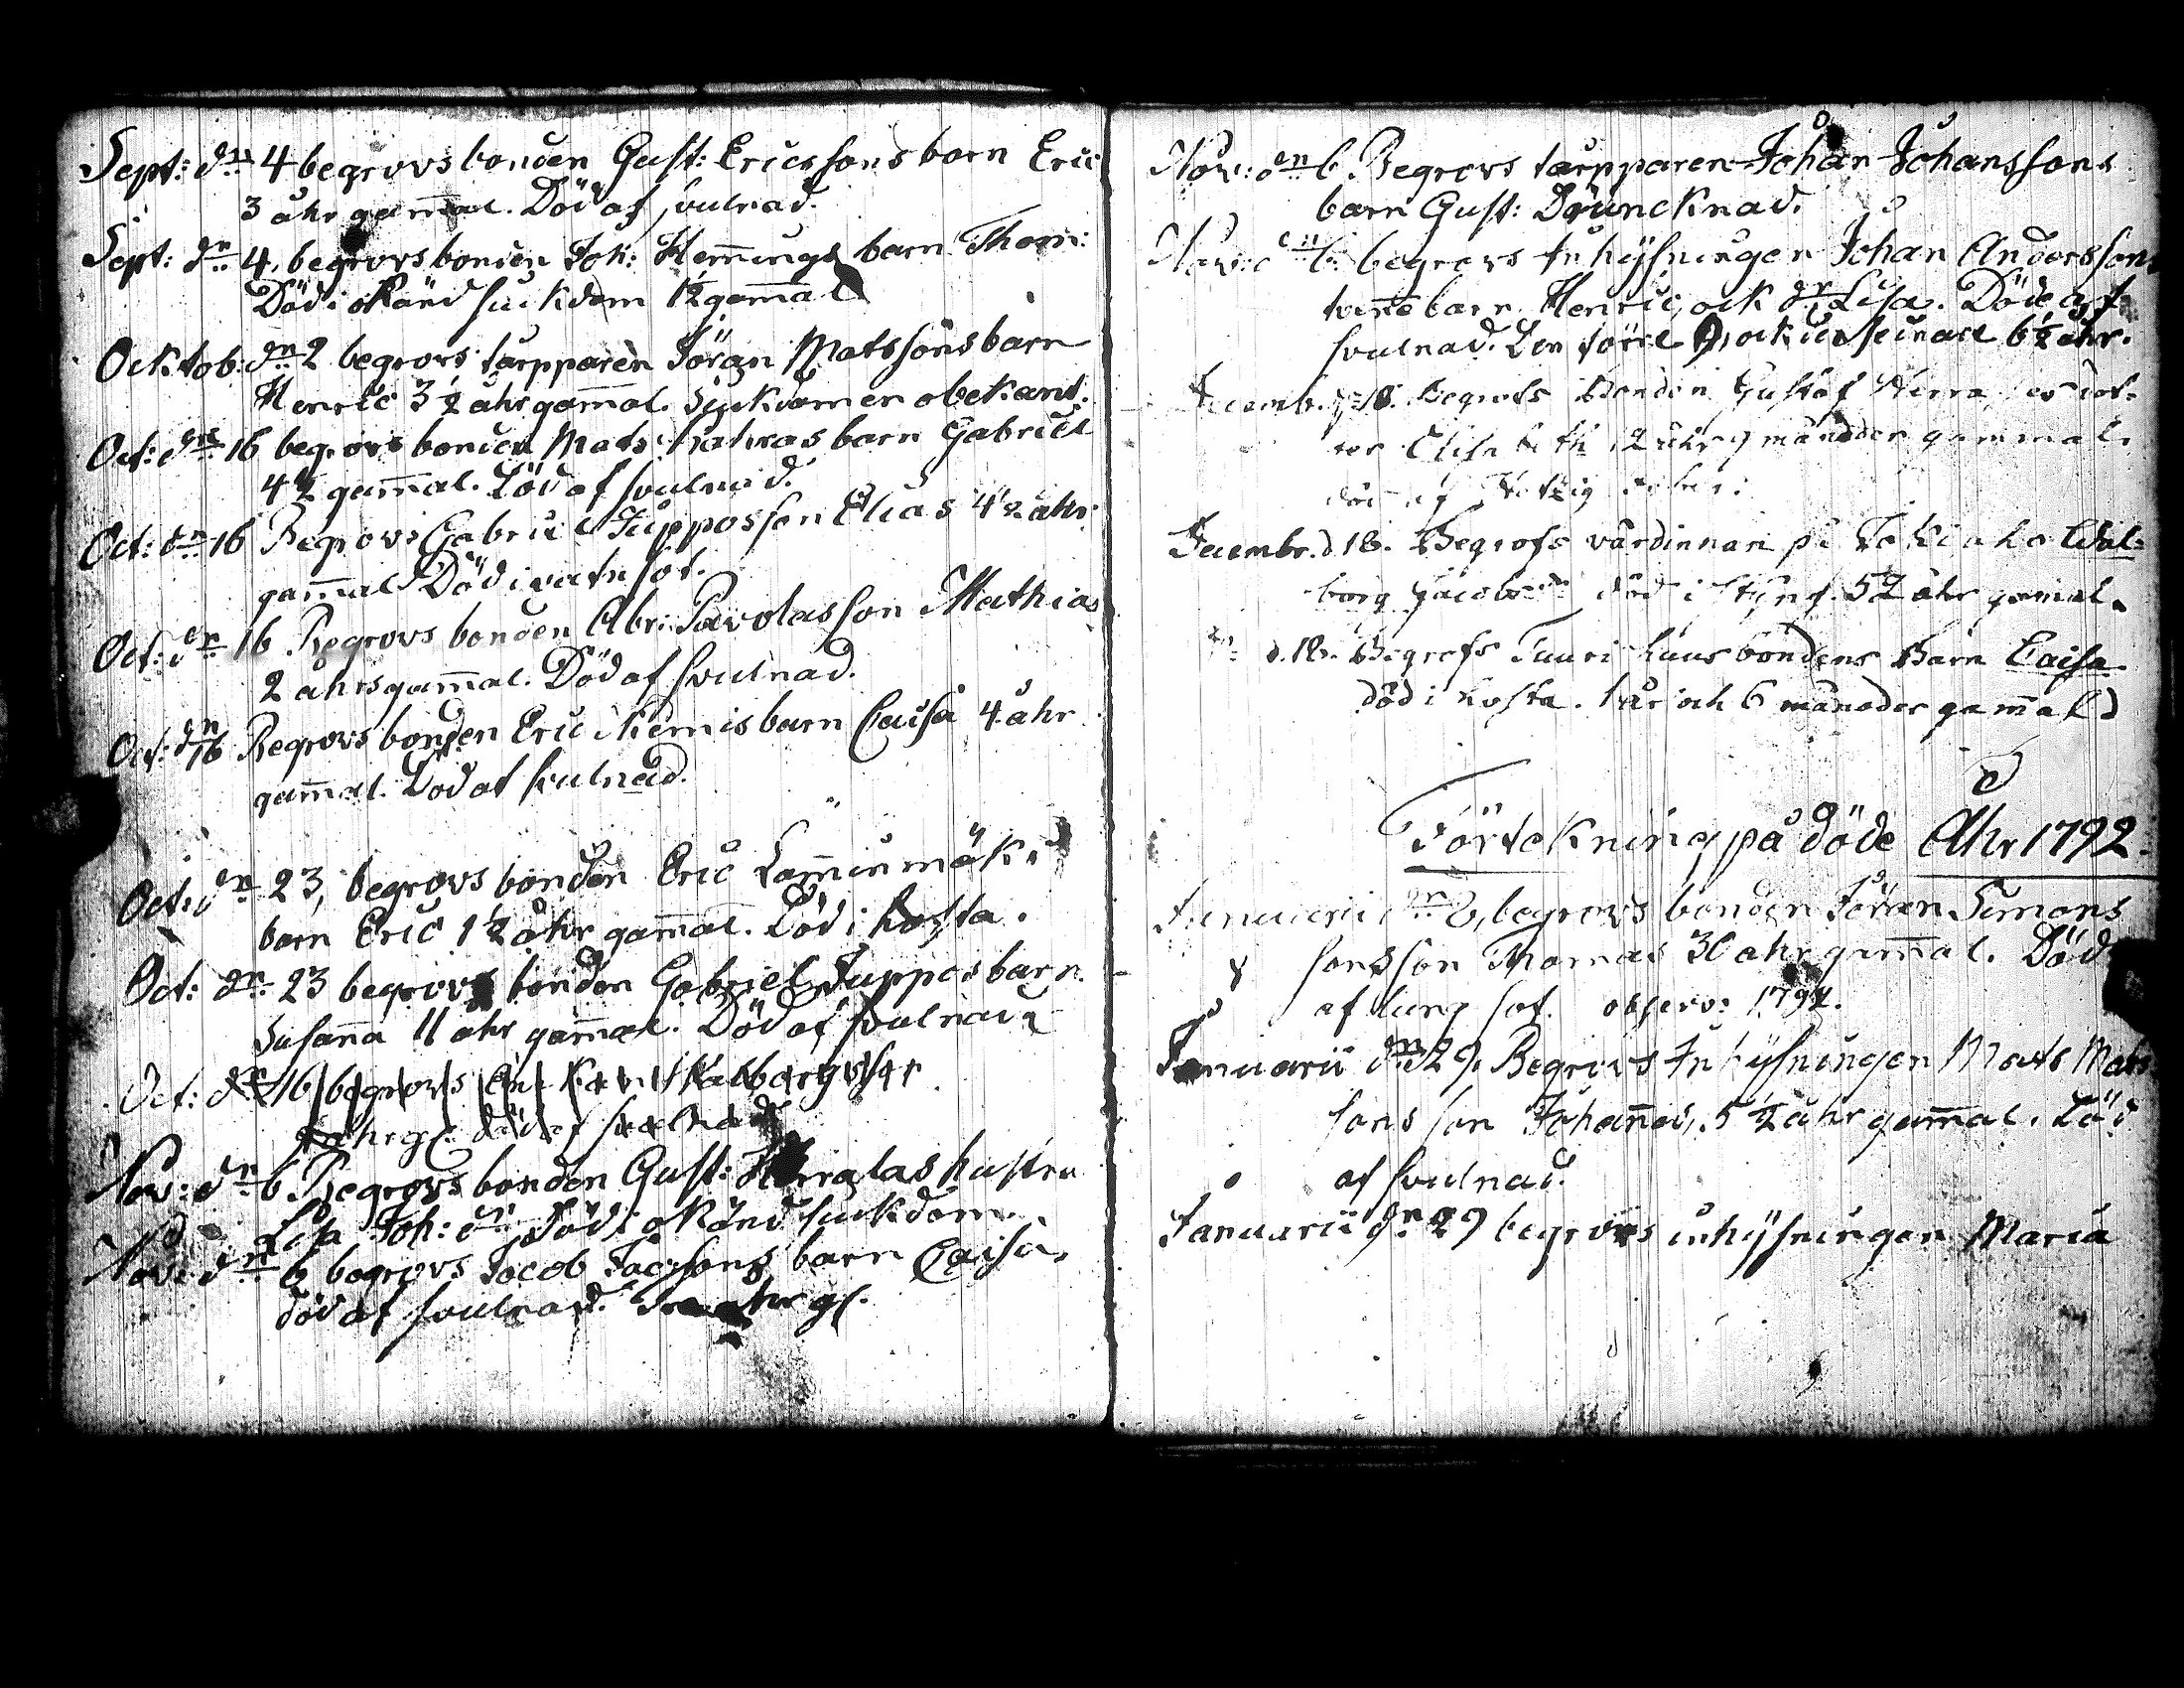 Sept: dn 4 begrovs bonden Gust: Ericssons barn Eric
3 åhr gam̄al. Död af svulnad.
Sept: dn 4, begrovs bonden Joh: Hem̄ings barn Thom:
Död i okänd siuckdom 1½ gam̄al
Ocktob: dn 2 begrovs tårpparen Jöran Matssons barn
Henric 3½ åhr gam̄al. Siukdomen obekant.
Oct: dn 16 begrovs bonden Mats barn Gabriel
4½ gam̄al. Död af svulnad.
Oct: dn 16 Begrovs Gabriel Jupposson Elias 4½ åhr
gam̄al Död i vatnsot.
Oct: dn 16 Begrovs bonden Abr: Pavolasson Mathias
2 åhrs gam̄al. Död af svulnad.
Oct: dn 16 Begrovs bonden Eric Niemis barn Caisa 4 åhr
gam̄al. Död af svulnad.
Oct: dn 23, begrovs bonden Eric Lam̄inmäki
barn Eric 1½ åhr gam̄al. Död i hosta.
Oct: dn 23 begrovs bonden Gabriel Juppos barn
Susan̄a 11 åhr gam̄al. Död af svulnad
Oct: dn 16 begrovs
åhr gl. död af svulnad
Nov: dn 6. Begrovs bonden Gust: hustru
Lisa Joh: dr Död i okänd siukdom.
Nov: dn 6 begrovs Jacob Jacssons barn Caisa,
död af svulnad. åhr gl.
Nov: dn 6. Begrovs tårpparen Johan Johanssons
barn Gust: Druncknad.
Nov: dn 6. begrovs Inhysningen Johan Anderssons
twen̄e barn Henric, ock Lisa. Döde af
svulnad. Den förre ock den senare 6½ åhr.
Decemb. d. 18. Begrofs Bonden Gustaf dot-
ter Elisabeth 2 åhr 9 månader gammal.
död af
Decembr. d 18. Begrofs värdinnan på Wal-
borg Jacobsdr död i styng. 52 åhr gam̄al.
d. 18. Begrofs Tuuri husbondens Barn Caisa
död i hosta. 1 år och 6 månader gam̄al
Förtekning på döde Åhr 1792.
Januarii dn 8, begrovs bonden Jöran Simons
sons son Thomas 30 åhr gam̄al. Död
af lung sot. observ: 1792.
Januarii dn 29. Begrovs Inhysningen Mats Mats
sons son Johan̄es, 5½ åhr gam̄al. Död
af svulnad.
Januarii dn 29 begrovs inhysningen Maria